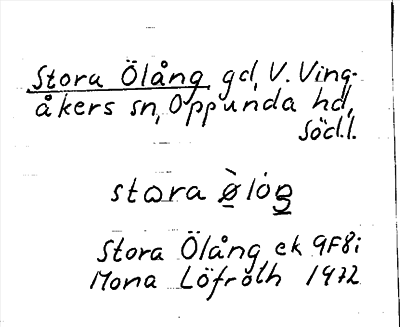 Stora Ölång gd, V. Ving-
åkers sn, Oppunda hd,
Södl.
stɷra ø̀lȯŋ
Stora Ölång ek 9F8i
Mona Löfroth 1972